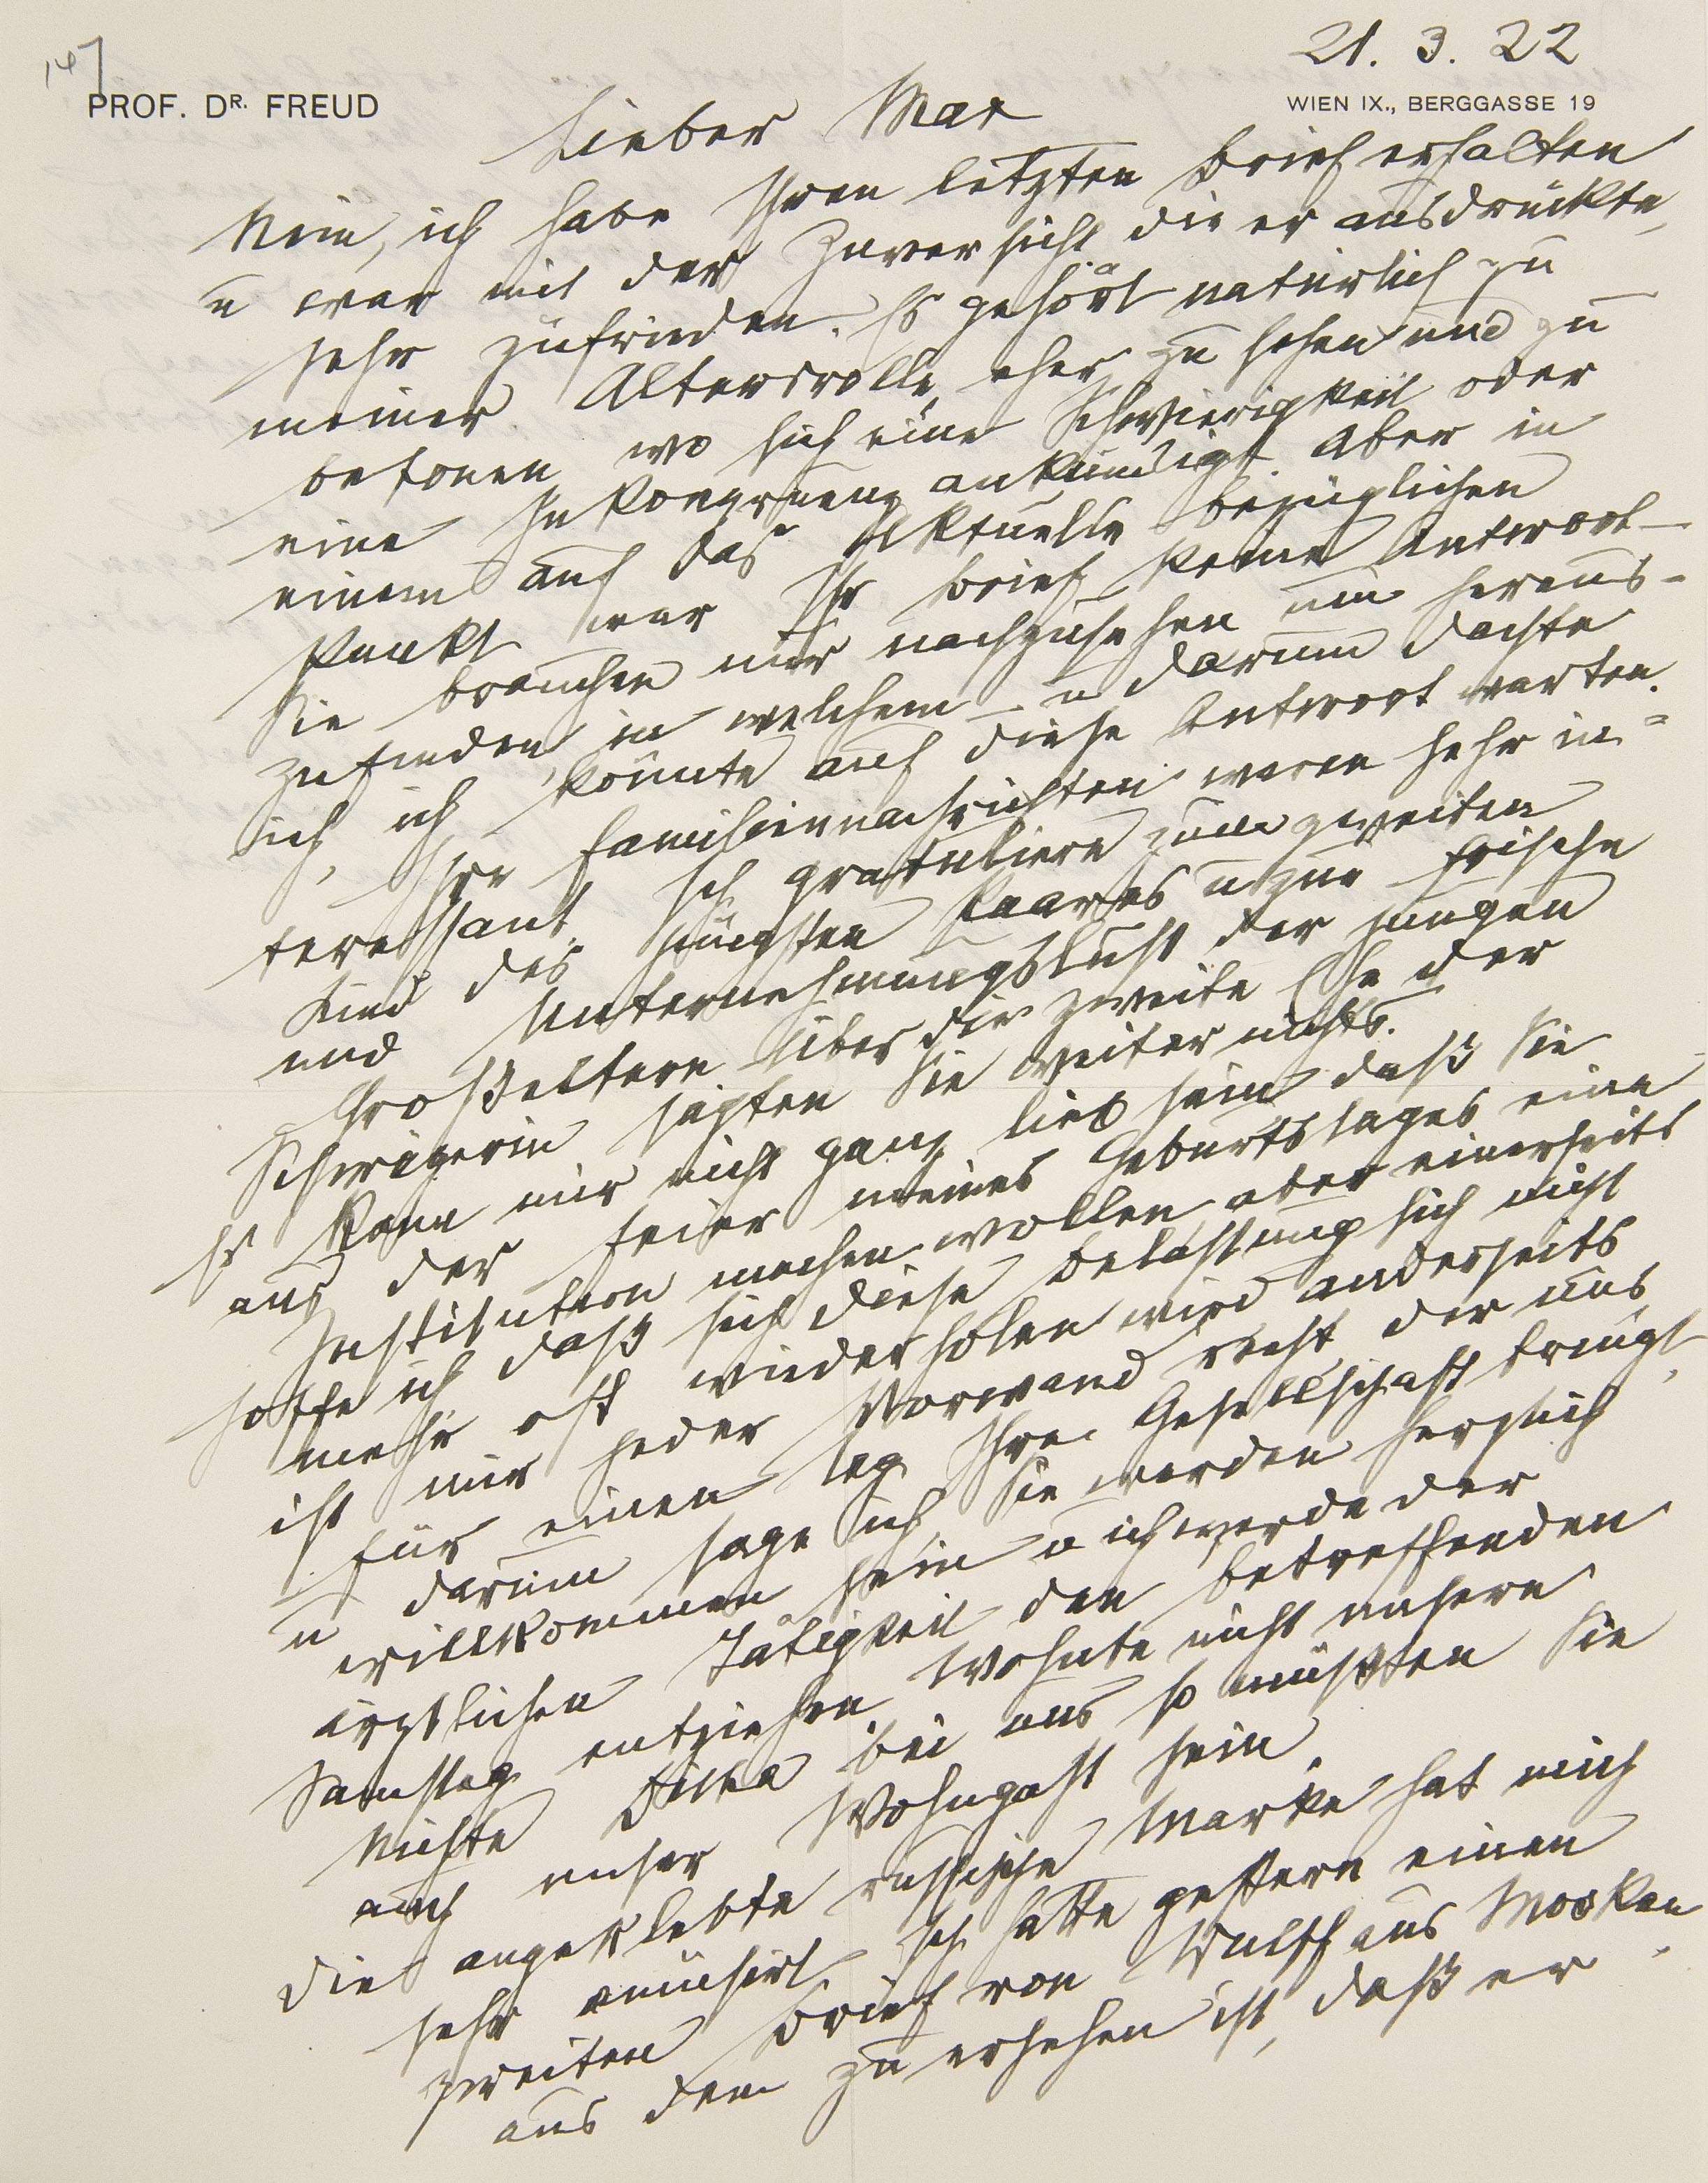 147
21. 3. 22
PROF. DR. FREUD
WIEN IX., BERGGASSE 19
Lieber Max
Nein, ich habe Ihren letzten Brief erhalten
u war mit der Zuversicht, die er ausdrückte,
sehr zufrieden. Es gehört natürlich zu
meiner Altersrolle, eher zu sehen und zu
betonen, wo sich eine Schwierigkeit oder
eine Inkongruenz ankündigt. Aber in
einem auf das Aktuelle bezüglichen
Punkt war Ihr Brief keine Antwort –
Sie brauchen nur nachzusehen um heraus-
zufinden, in welchem – u darum dachte
ich, ich könnte auf diese Antwort warten.
Ihre Familiennachrichten waren sehr in-
teressant. Ich gratuliere zum zweiten
Kind des jüngsten Paares u zur Frische
und Unternehmungslust der jungen
Großeltern. Über die zweite Ehe der
Schwägerin sagten Sie weiter nichts.
Es kann mir nicht ganz lieb sein, daß Sie
aus der Feier meines Geburtstages eine
Institution machen wollen, aber einerseits
hoffe ich, daß sich diese Belastung sich nicht
mehr oft wiederholen wird, anderseits
ist mir jeder Vorwand recht, der uns
für einen Tag Ihre Gesellschaft bringt,
u darum sage ich, Sie werden herzlich
willkommen sein u ich werde der
ärztlichen Tätigkeit den betreffenden
Samstag entziehen. Wohnte nicht unsere
Nichte bei uns, so müßten Sie
auch unser Wohngast sein.
Die angeklebte russische Marke hat mich
sehr amüsirt. Ich hatte gestern einen
zweiten Brief von Wulff aus Moskau,
aus dem zu ersehen ist, daß er